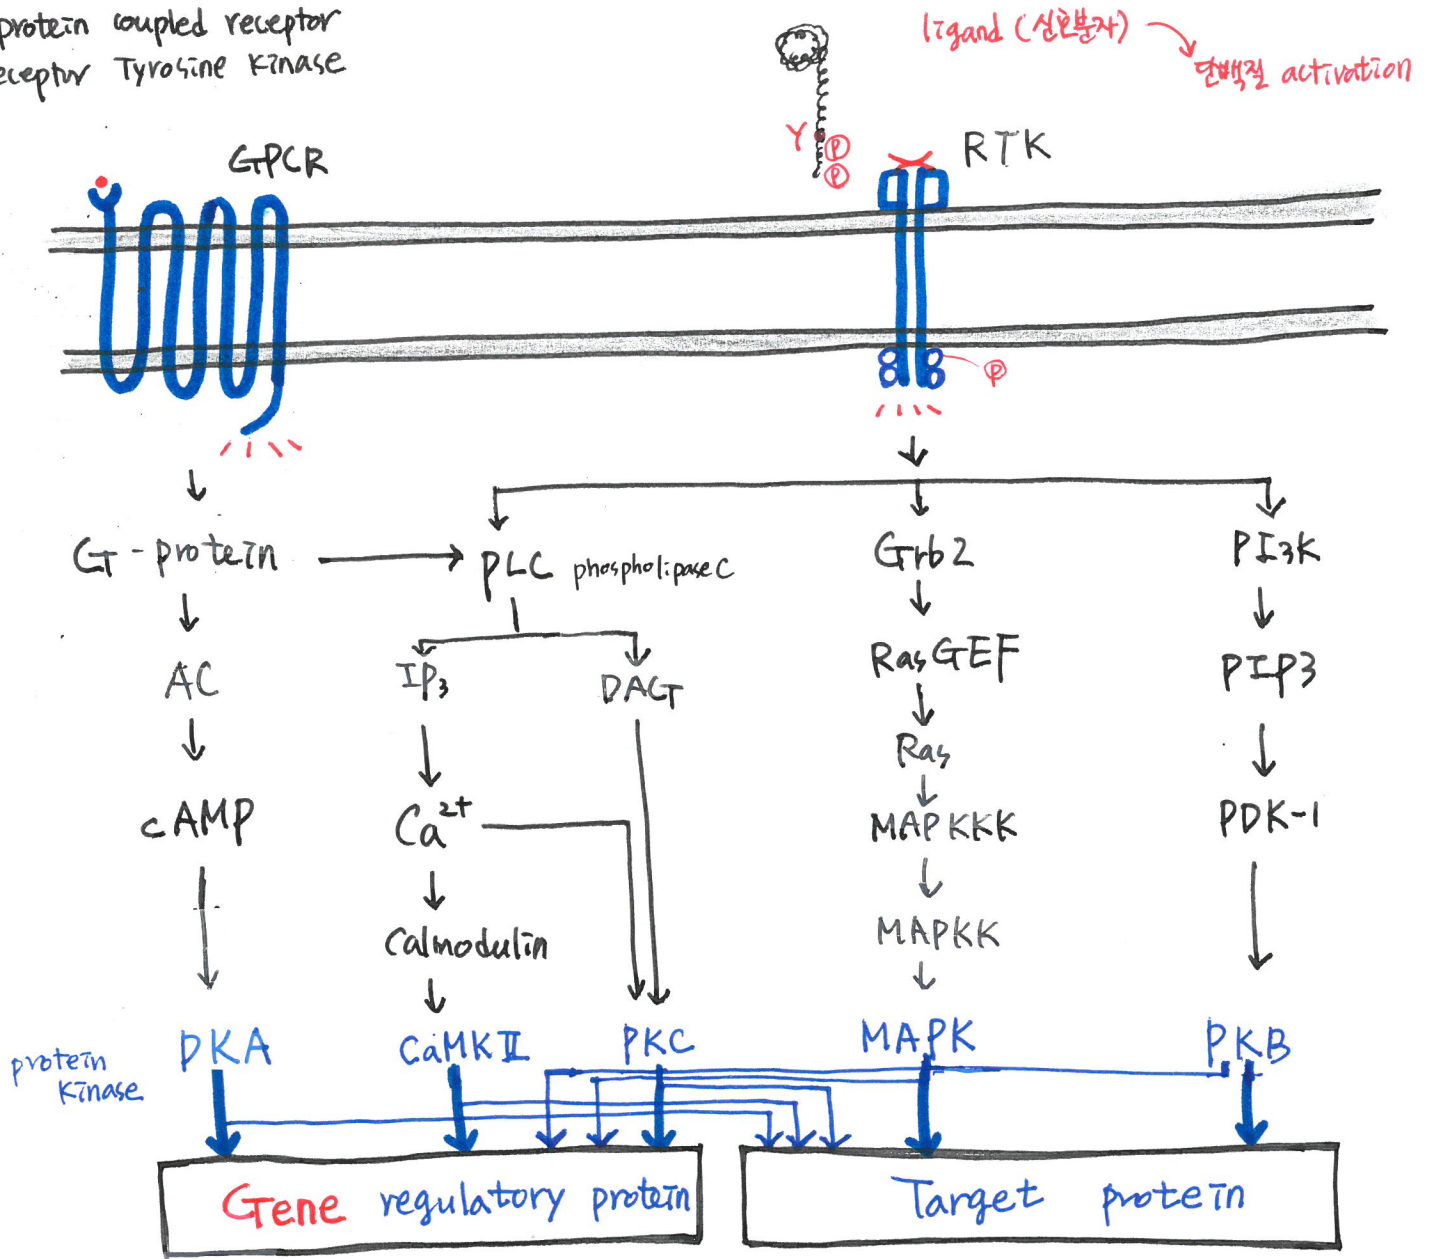 protein coupled receptor
eceptor Tyrosine Kinase
ligand (신호분자)
단백질 activation
GPCR
Y
P
P
RTK
P
G-protein
PLC phospholipase C
Grb2
PI3K
AC
IP3
DAG
RasGEF
PIP3
Ras
cAMP
Ca2+
MAPKKK
PDK-1
Calmodulin
MAPKK
protein
kinase
PKA
CaMKⅡ
PKC
MAPK
PKB
Gene regulatory protein
Target protein